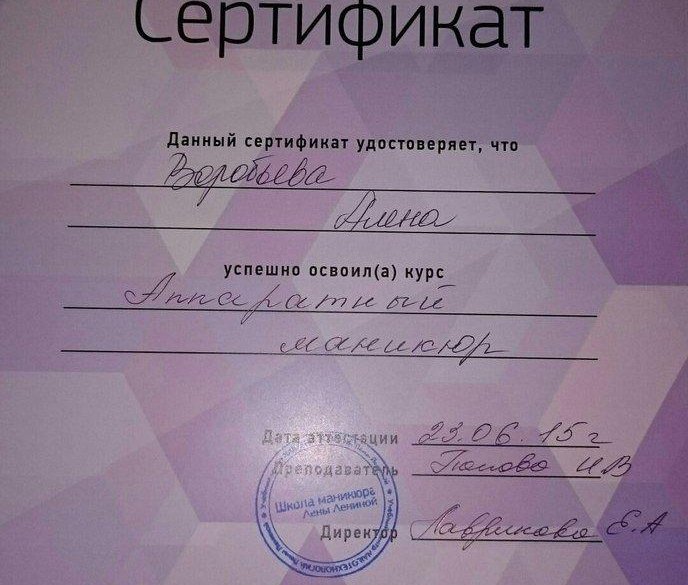 Сертификат
Данный сертификат удостоверяет, что
Воробьева
Алена
успешно освоил(а) курс
Аппаратный
маникюр
Дата аттестации 23.06.15г
Преподаватель Попова И.В
Школа маникюра
Лены Лениной
Директор Лаврикова Е.А